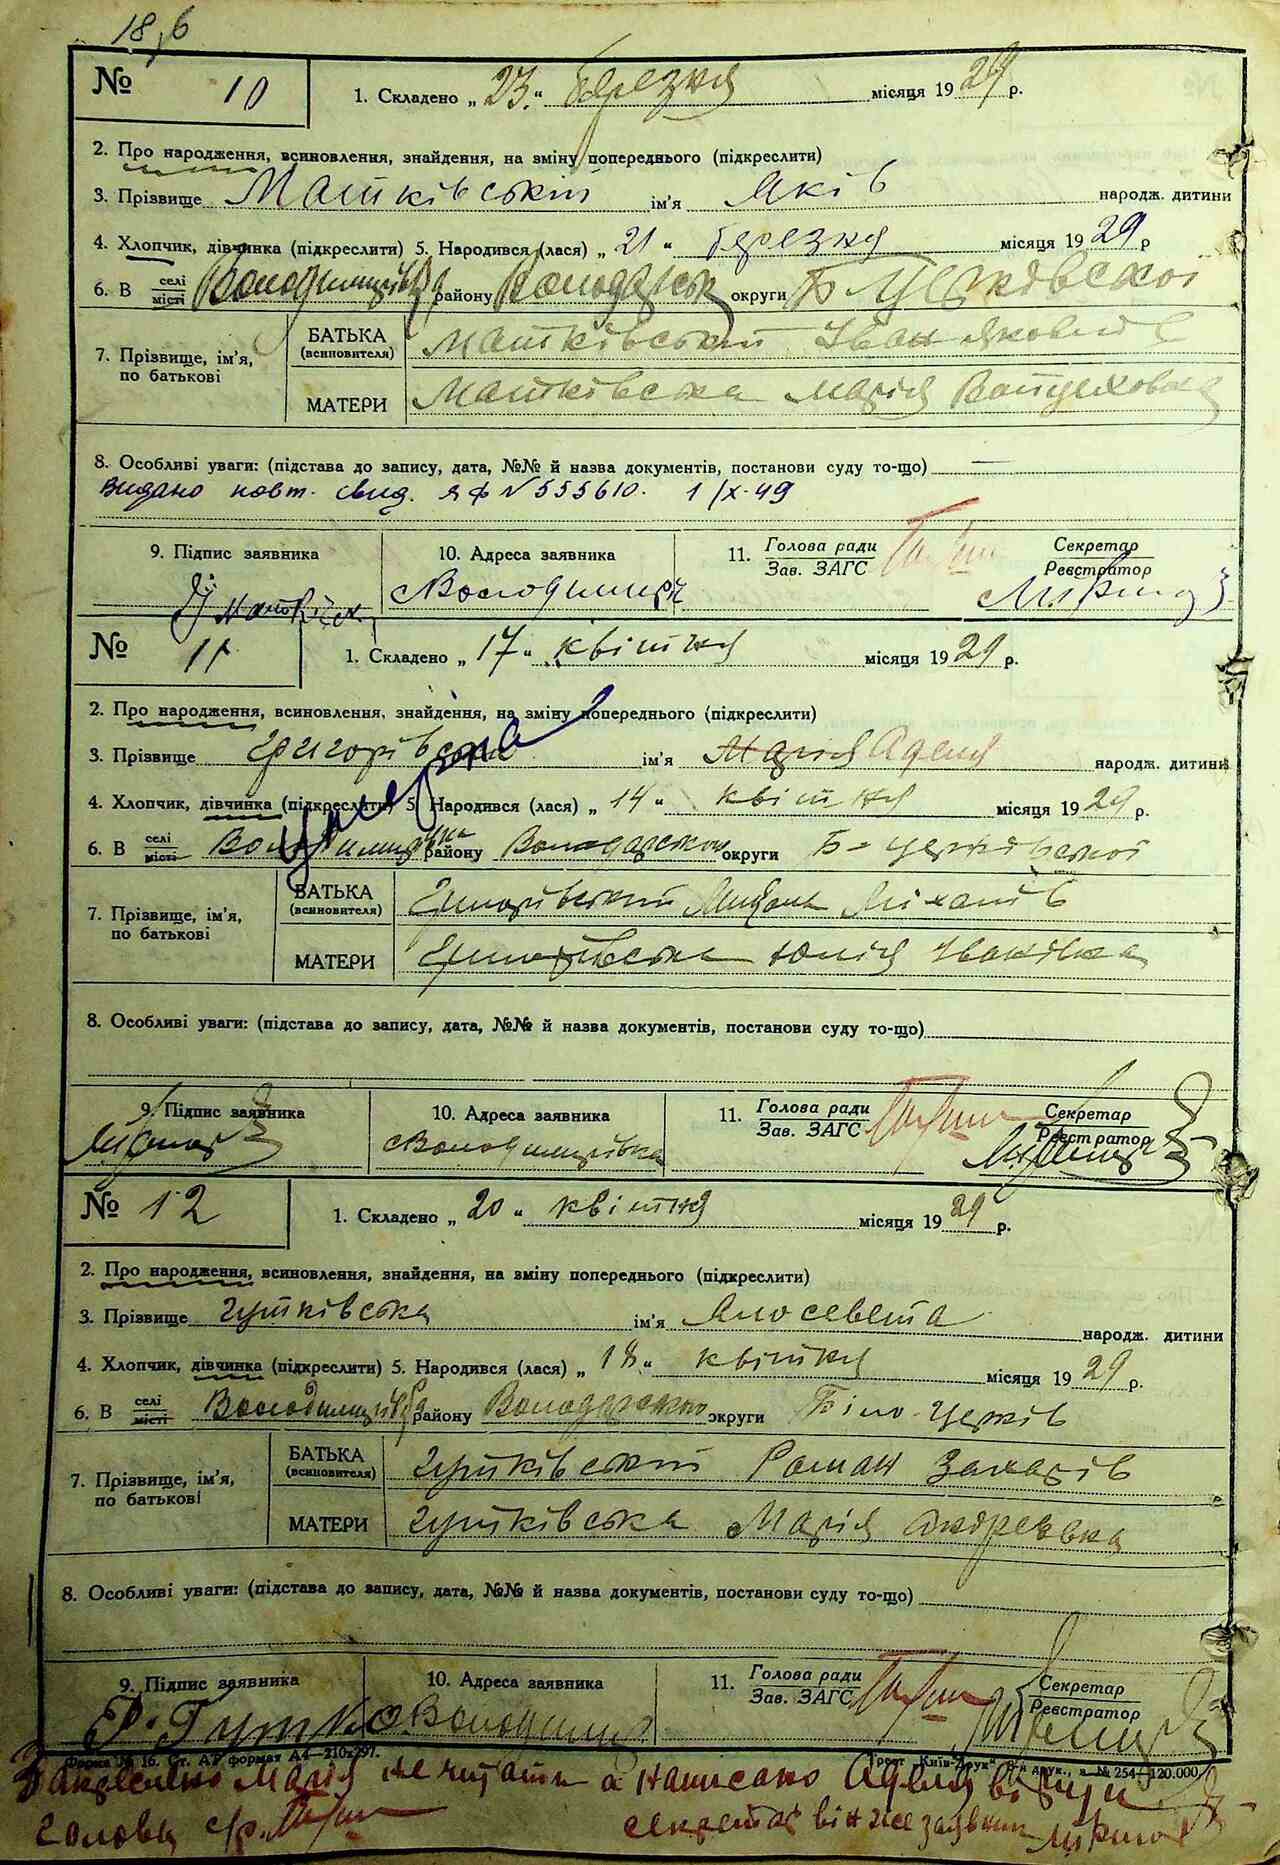 18,6
№ 10
1. Складено „ 23 “ березня місяця 1929 р.
2. Про народження, всиновлення, знайдення, на зміну попереднього (підкреслити)
3. Прізвище Матківський ім'я Яків народж. дитини
4. Хлопчик, дівчинка (підкреслити) 5. Народився (лася) „ 21 “ березня місяця 1929 р
6. В селі місті Володимирівка району Володарськ округи Б Церковської
7. Прізвище, ім'я, по батькові
БАТЬКА (всиновителя) Матківський Іван Якович
МАТЕРИ Матківська Марія Войцеховна
8. Особливі уваги: (підстава до запису, дата, №№ й назва документів, постанови суду то-що) —
Видано повт. свид. ЯФ № 555610. 1/X-49
9. Підпис заявника 10. Адреса заявника 11. Голова ради Зав. ЗАГС Секретар Реєстратор
Володимирі
№ 11
1. Складено „ 17 “ квітня місяця 1929 р.
2. Про народження, всиновлення, знайдення, на зміну попереднього (підкреслити)
3. Прізвище Григорівська ім'я Марія Аделя народж. дитини
Умерла
4. Хлопчик, дівчинка (підкреслити) 5. Народився (лася) „ 14 “ квітня місяця 1929 р.
6. В селі місті Володимирівка району Володарськ округи Б-Церківської
7. Прізвище, ім'я, по батькові
БАТЬКА (всиновителя) Григорівський
МАТЕРИ Григорівська Юлія Іванівна
8. Особливі уваги: (підстава до запису, дата, №№ й назва документів, постанови суду то-що)
9. Підпис заявника 10. Адреса заявника 11. Голова ради Зав. ЗАГС Секретар Реєстратор
Володимирівка
№ 12
1. Складено „ 20 “ квітня місяця 1929 р.
2. Про народження, всиновлення, знайдення, на зміну попереднього (підкреслити)
3. Прізвище Гутківська ім'я Ялосевета народж. дитини
4. Хлопчик, дівчинка (підкреслити) 5. Народився (лася) „ 18 “ квітня місяця 1929 р.
6. В селі місті Володимирівка району Володарсько округи Біло-Церків
7. Прізвище, ім'я, по батькові
БАТЬКА (всиновителя) Гутківський Роман Захарів
МАТЕРИ Гутківська Марія Андреевна
8. Особливі уваги: (підстава до запису, дата, №№ й назва документів, постанови суду то-що)
9. Підпис заявника 10. Адреса заявника 11. Голова ради Зав. ЗАГС Секретар Реєстратор
Р. Гутко Володимир
Форма № 16. Ст. А4 формат А4—210х297. Трест „Київ-Друк“ друк., з. № 254—120.000
Закреслено Марія не читати а написано Аделя
голова с/р. секретар він же заявник